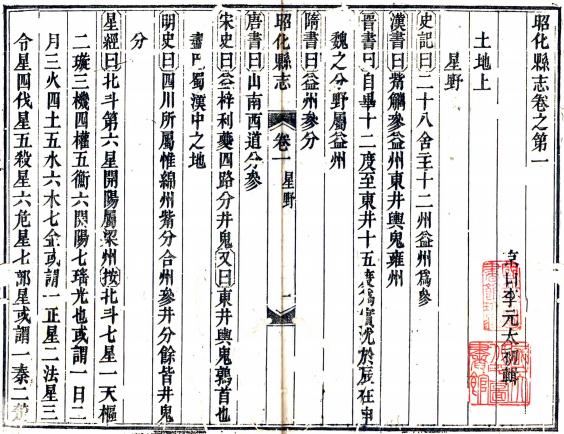 昭化縣志卷之第一
李元太初輯
土地上
星野
史記曰二十八舍主十二州益州為參
漢書曰觜觿參益州東井輿鬼雍州
晉書曰自畢十二度至東井十五度為實沈於辰在申
魏之分野屬益州
隋書曰益州參分
昭化縣志
卷一
星野
一
唐書曰山南西道分參
宋史曰益梓利夔四路分井鬼又曰東井輿鬼鶉首也
盡巴蜀漢中之地
明史曰四川所屬惟綿州觜分合州參井分餘皆井鬼
分
星經曰北斗第六星開陽屬梁州按北斗七星一天樞
二璇三機四權五衡六開陽七瑤光也或謂一日二
月三火四土五水六木七金或謂一正星二法星三
令星四伐星五殺星六危星七部星或謂一秦二楚